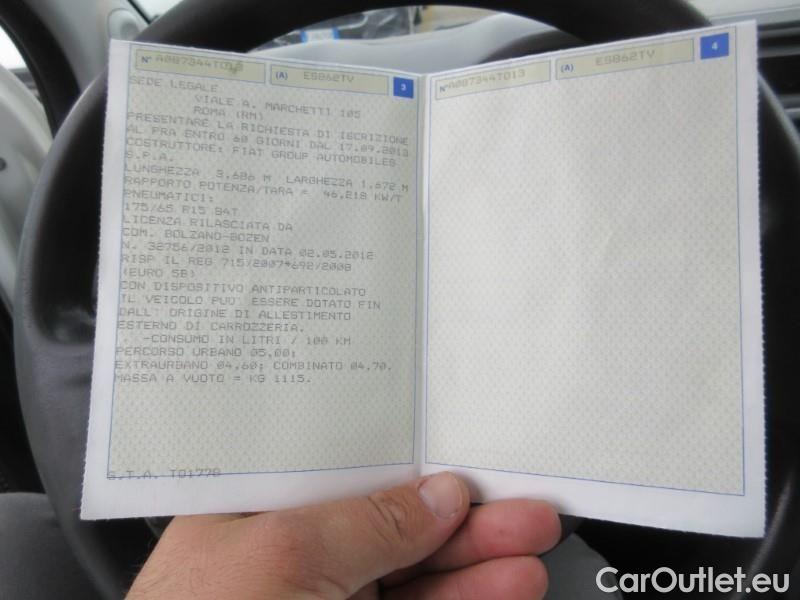 N° A087344T013
(A) ES862TV
3
SEDE LEGALE
VIALE A. MARCHETTI 105
ROMA (RM)
PRESENTARE LA RICHIESTA DI ISCRIZIONE
AL PRA ENTRO 60 GIORNI DAL 17.09.2013
COSTRUTTORE: FIAT GROUP AUTOMOBILES
S.P.A.
LUNGHEZZA 3,686 M LARGHEZZA 1,672 M
RAPPORTO POTENZA/TARA = 46,218 KW/T
PNEUMATICI:
175/65 R15 84T
LICENZA RILASCIATA DA
COM. BOLZANO-BOZEN
N. 32756/2012 IN DATA 02.05.2012
RISP IL REG 715/2007*692/2008
(EURO 5B)
CON DISPOSITIVO ANTIPARTICOLATO
IL VEICOLO PUO' ESSERE DOTATO FIN
DALL' ORIGINE DI ALLESTIMENTO
ESTERNO DI CARROZZERIA.
. -CONSUMO IN LITRI / 100 KM
PERCORSO URBANO 05,00;
EXTRAURBANO 04,60; COMBINATO 04,70.
MASSA A VUOTO = KG 1115.
S.T.A. TO1778
N° A087344T013
(A) ES862TV
4
CarOutlet.eu